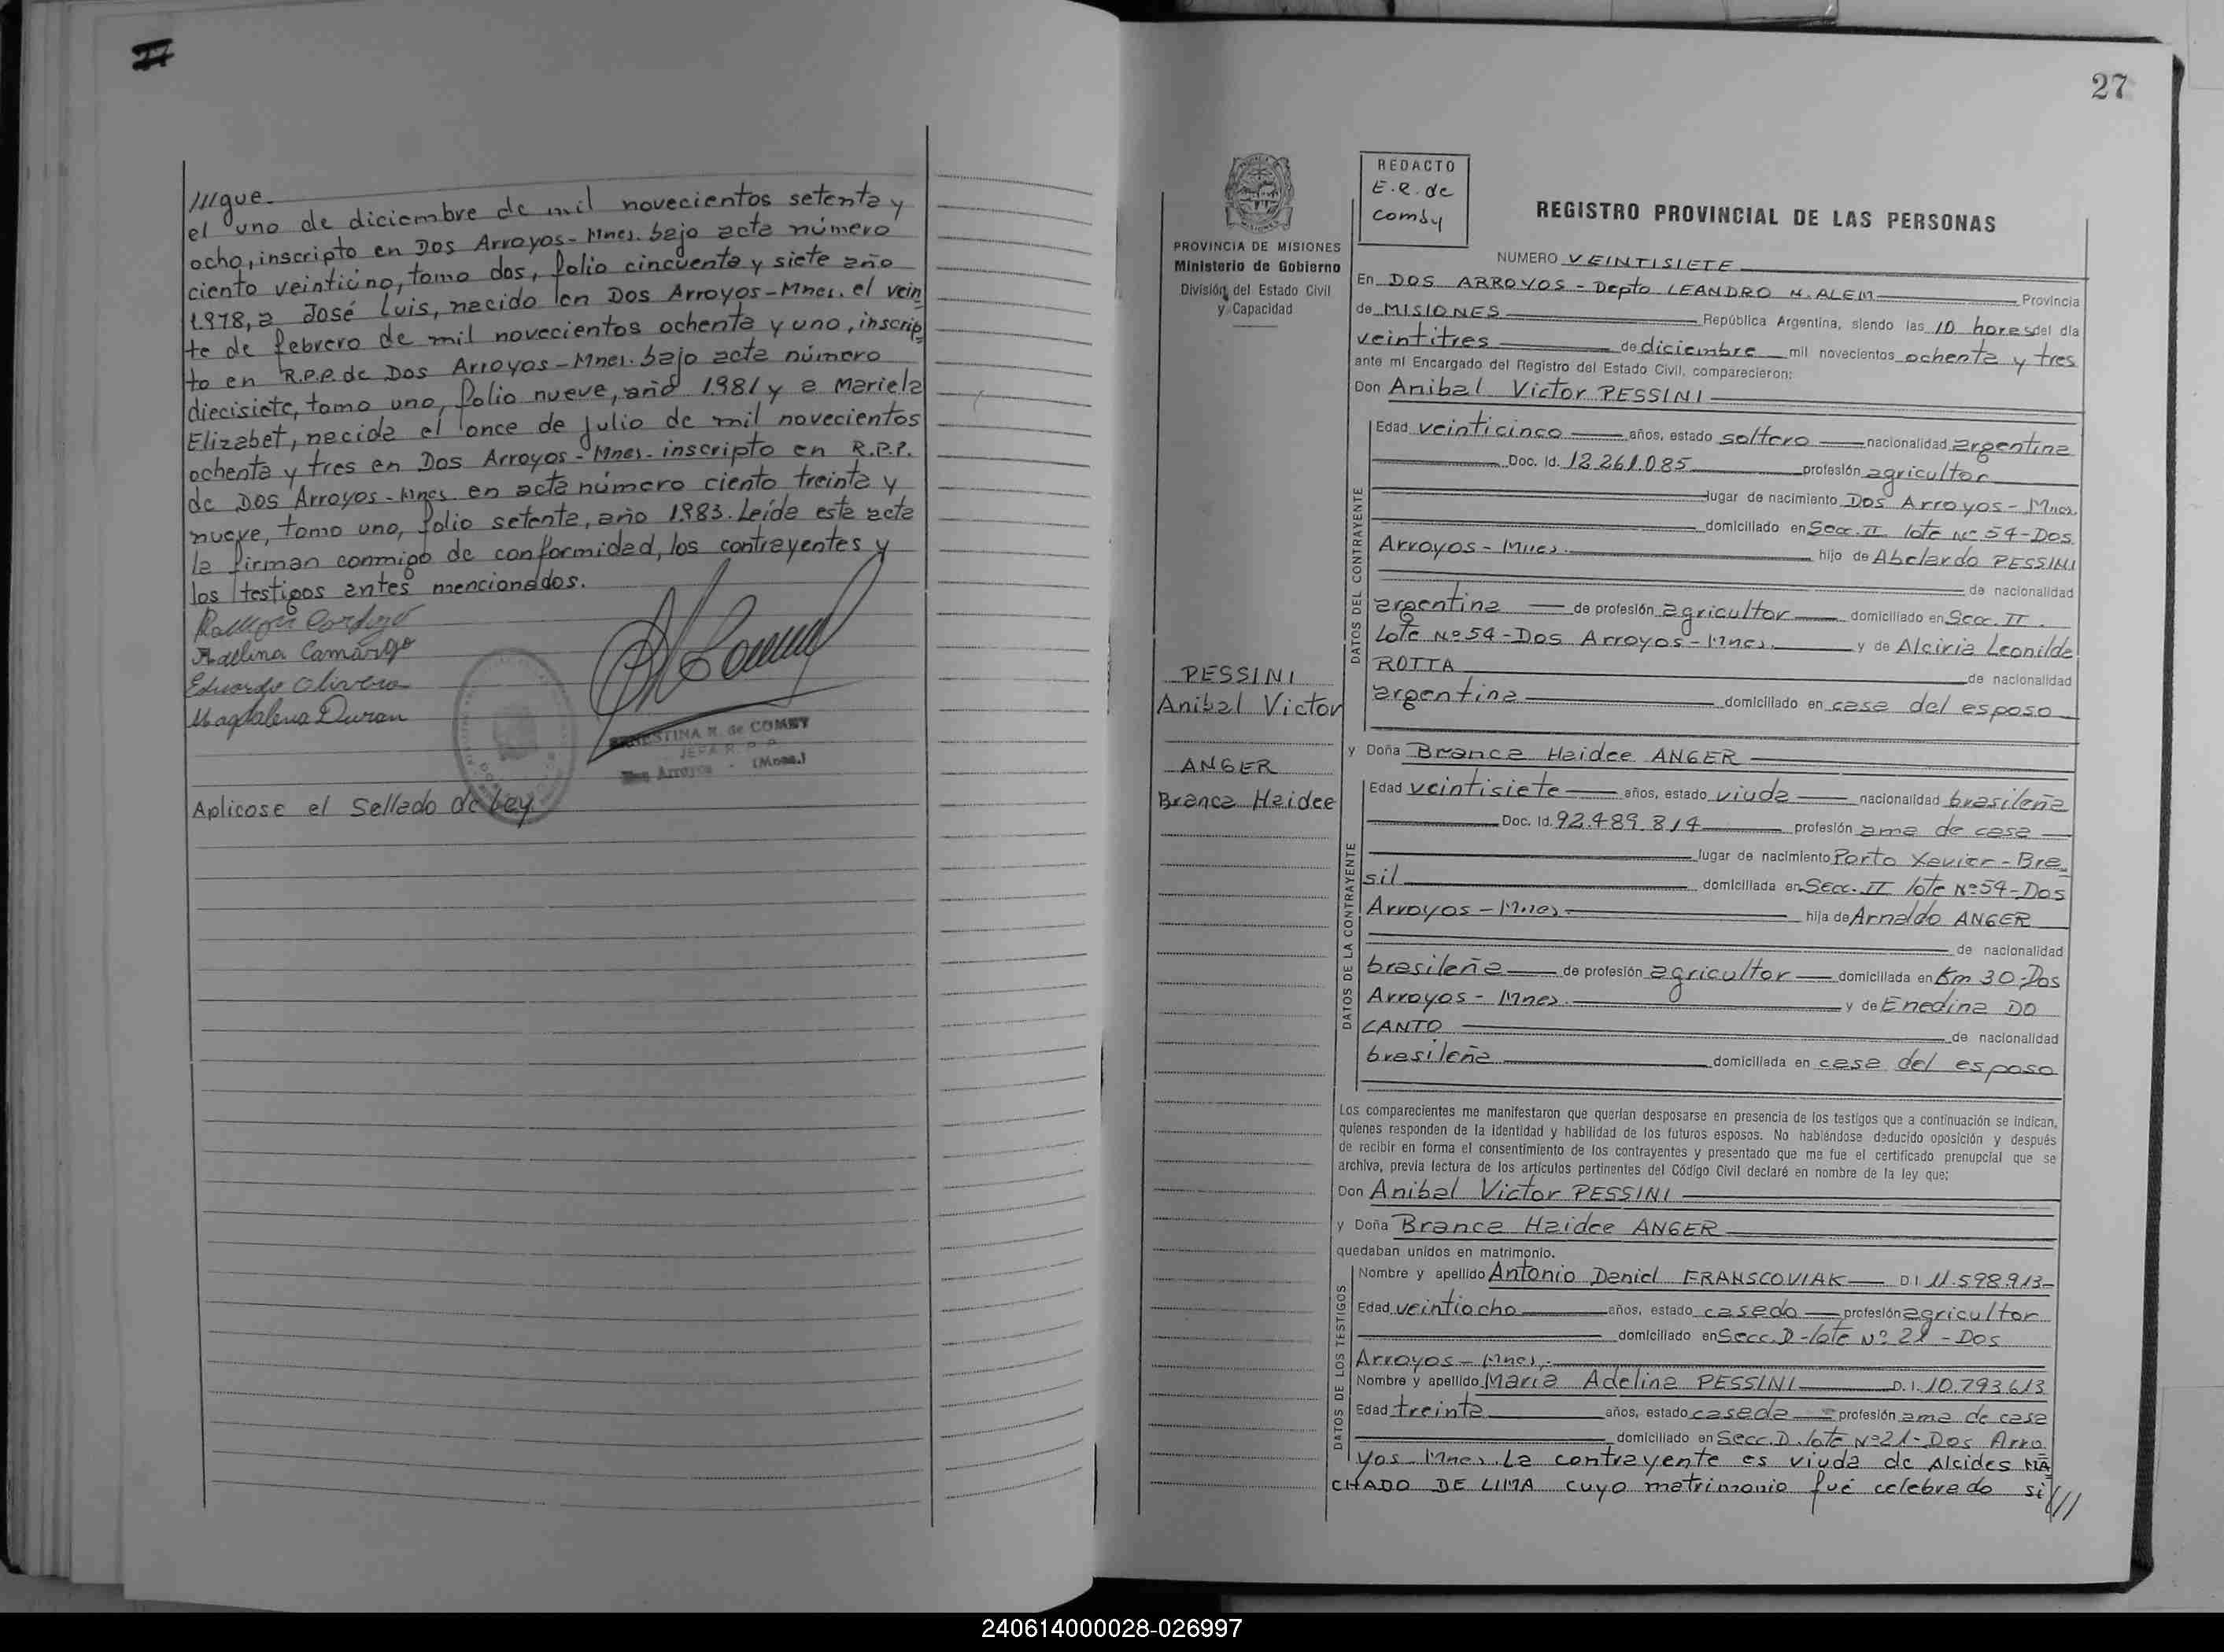 ////que
el uno de diciembre de mil novecientos setenta y
ocho, inscripto en Dos Arroyos - Mnes. bajo acta número
ciento veintiuno, tomo dos, folio cincuenta y siete año
1.978, a José Luis, nacido en Dos Arroyos - Mnes. el vein
te de febrero de mil novecientos ochenta y uno, inscrip
to en R.P.P. de Dos Arroyos - Mnes. bajo acta número
diecisiete, tomo uno, folio nueve, año 1.981 y a Mariela
Elizabet, nacida el once de julio de mil novecientos
ochenta y tres en Dos Arroyos - Mnes - inscripto en R.P.P.
de Dos Arroyos - Mnes en acta número ciento treinta y
nueve, tomo uno, folio setenta, año 1.983. Leída esta acta
la firman conmigo de conformidad, los contrayentes y
los testigos antes mencionados.
Adelina Camargo
Eduardo Olivera
Magdalena Duran
ERNESTINA R. de COMBY
JEFA R. P. P.
Dos Arroyos - (Mnes.)
Aplicose el Sellado de Ley
27
REDACTO
E.R. de
Comby
PROVINCIA DE MISIONES
Ministerio de Gobierno
División del Estado Civil
y Capacidad
PESSINI
Anibal Victor
ANGER
Branca Haidee
REGISTRO PROVINCIAL DE LAS PERSONAS
NUMERO VEINTISIETE
En DOS ARROYOS - Depto LEANDRO N. ALEM Provincia
de MISIONES República Argentina, siendo las 10 horas del día
veintitres de diciembre mil novecientos ochenta y tres
ante mí Encargado del Registro del Estado Civil, comparecieron:
Don Anibal Victor PESSINI
DATOS DEL CONTRAYENTE
Edad veinticinco años, estado soltero nacionalidad argentina
Doc. Id. 12.261.085 profesión agricultor
lugar de nacimiento Dos Arroyos - Mnes.
domiciliado en Secc. II lote Nº 54 - Dos
Arroyos - Mnes. hijo de Abelardo PESSINI
de nacionalidad
argentina de profesión agricultor domiciliado en Secc. II.
Lote Nº 54 - Dos Arroyos - Mnes. y de Alciria Leonilde
ROTTA de nacionalidad
argentina domiciliado en casa del esposo
y Doña Branca Haidee ANGER
DATOS DE LA CONTRAYENTE
Edad veintisiete años, estado viuda nacionalidad brasileña
Doc. Id. 92.489.814 profesión ama de casa
lugar de nacimiento Porto Xavier - Bra
sil domiciliada en Secc. II lote Nº 54 - Dos
Arroyos - Mnes - hija de Arnaldo ANGER
de nacionalidad
brasileña de profesión agricultor domiciliada en Km 30 - Dos
Arroyos - Mnes. y de Enedina DO
CANTO de nacionalidad
brasileña domiciliada en casa del esposo
Los comparecientes me manifestaron que querían desposarse en presencia de los testigos que a continuación se indican,
quienes responden de la identidad y habilidad de los futuros esposos. No habiéndose deducido oposición y después
de recibir en forma el consentimiento de los contrayentes y presentado que me fue el certificado prenupcial que se
archiva, previa lectura de los artículos pertinentes del Código Civil declaré en nombre de la ley que:
Don Anibal Victor PESSINI
y Doña Branca Haidee ANGER
quedaban unidos en matrimonio.
DATOS DE LOS TESTIGOS
Nombre y apellido Antonio Daniel FRANSCOVIAK D.I. 11.598.913
Edad veintiocho años, estado casado profesión agricultor
domiciliado en Secc. D - lote Nº 21 - Dos
Arroyos - Mnes.
Nombre y apellido Maria Adelina PESSINI D.I. 10.793.613
Edad treinta años, estado casada profesión ama de casa
domiciliado en Secc. D. lote Nº 21 - Dos Arro
yos - Mnes. La contrayente es viuda de Alcides MA
CHADO DE LIMA cuyo matrimonio fué celebrado si////
240614000028-026997